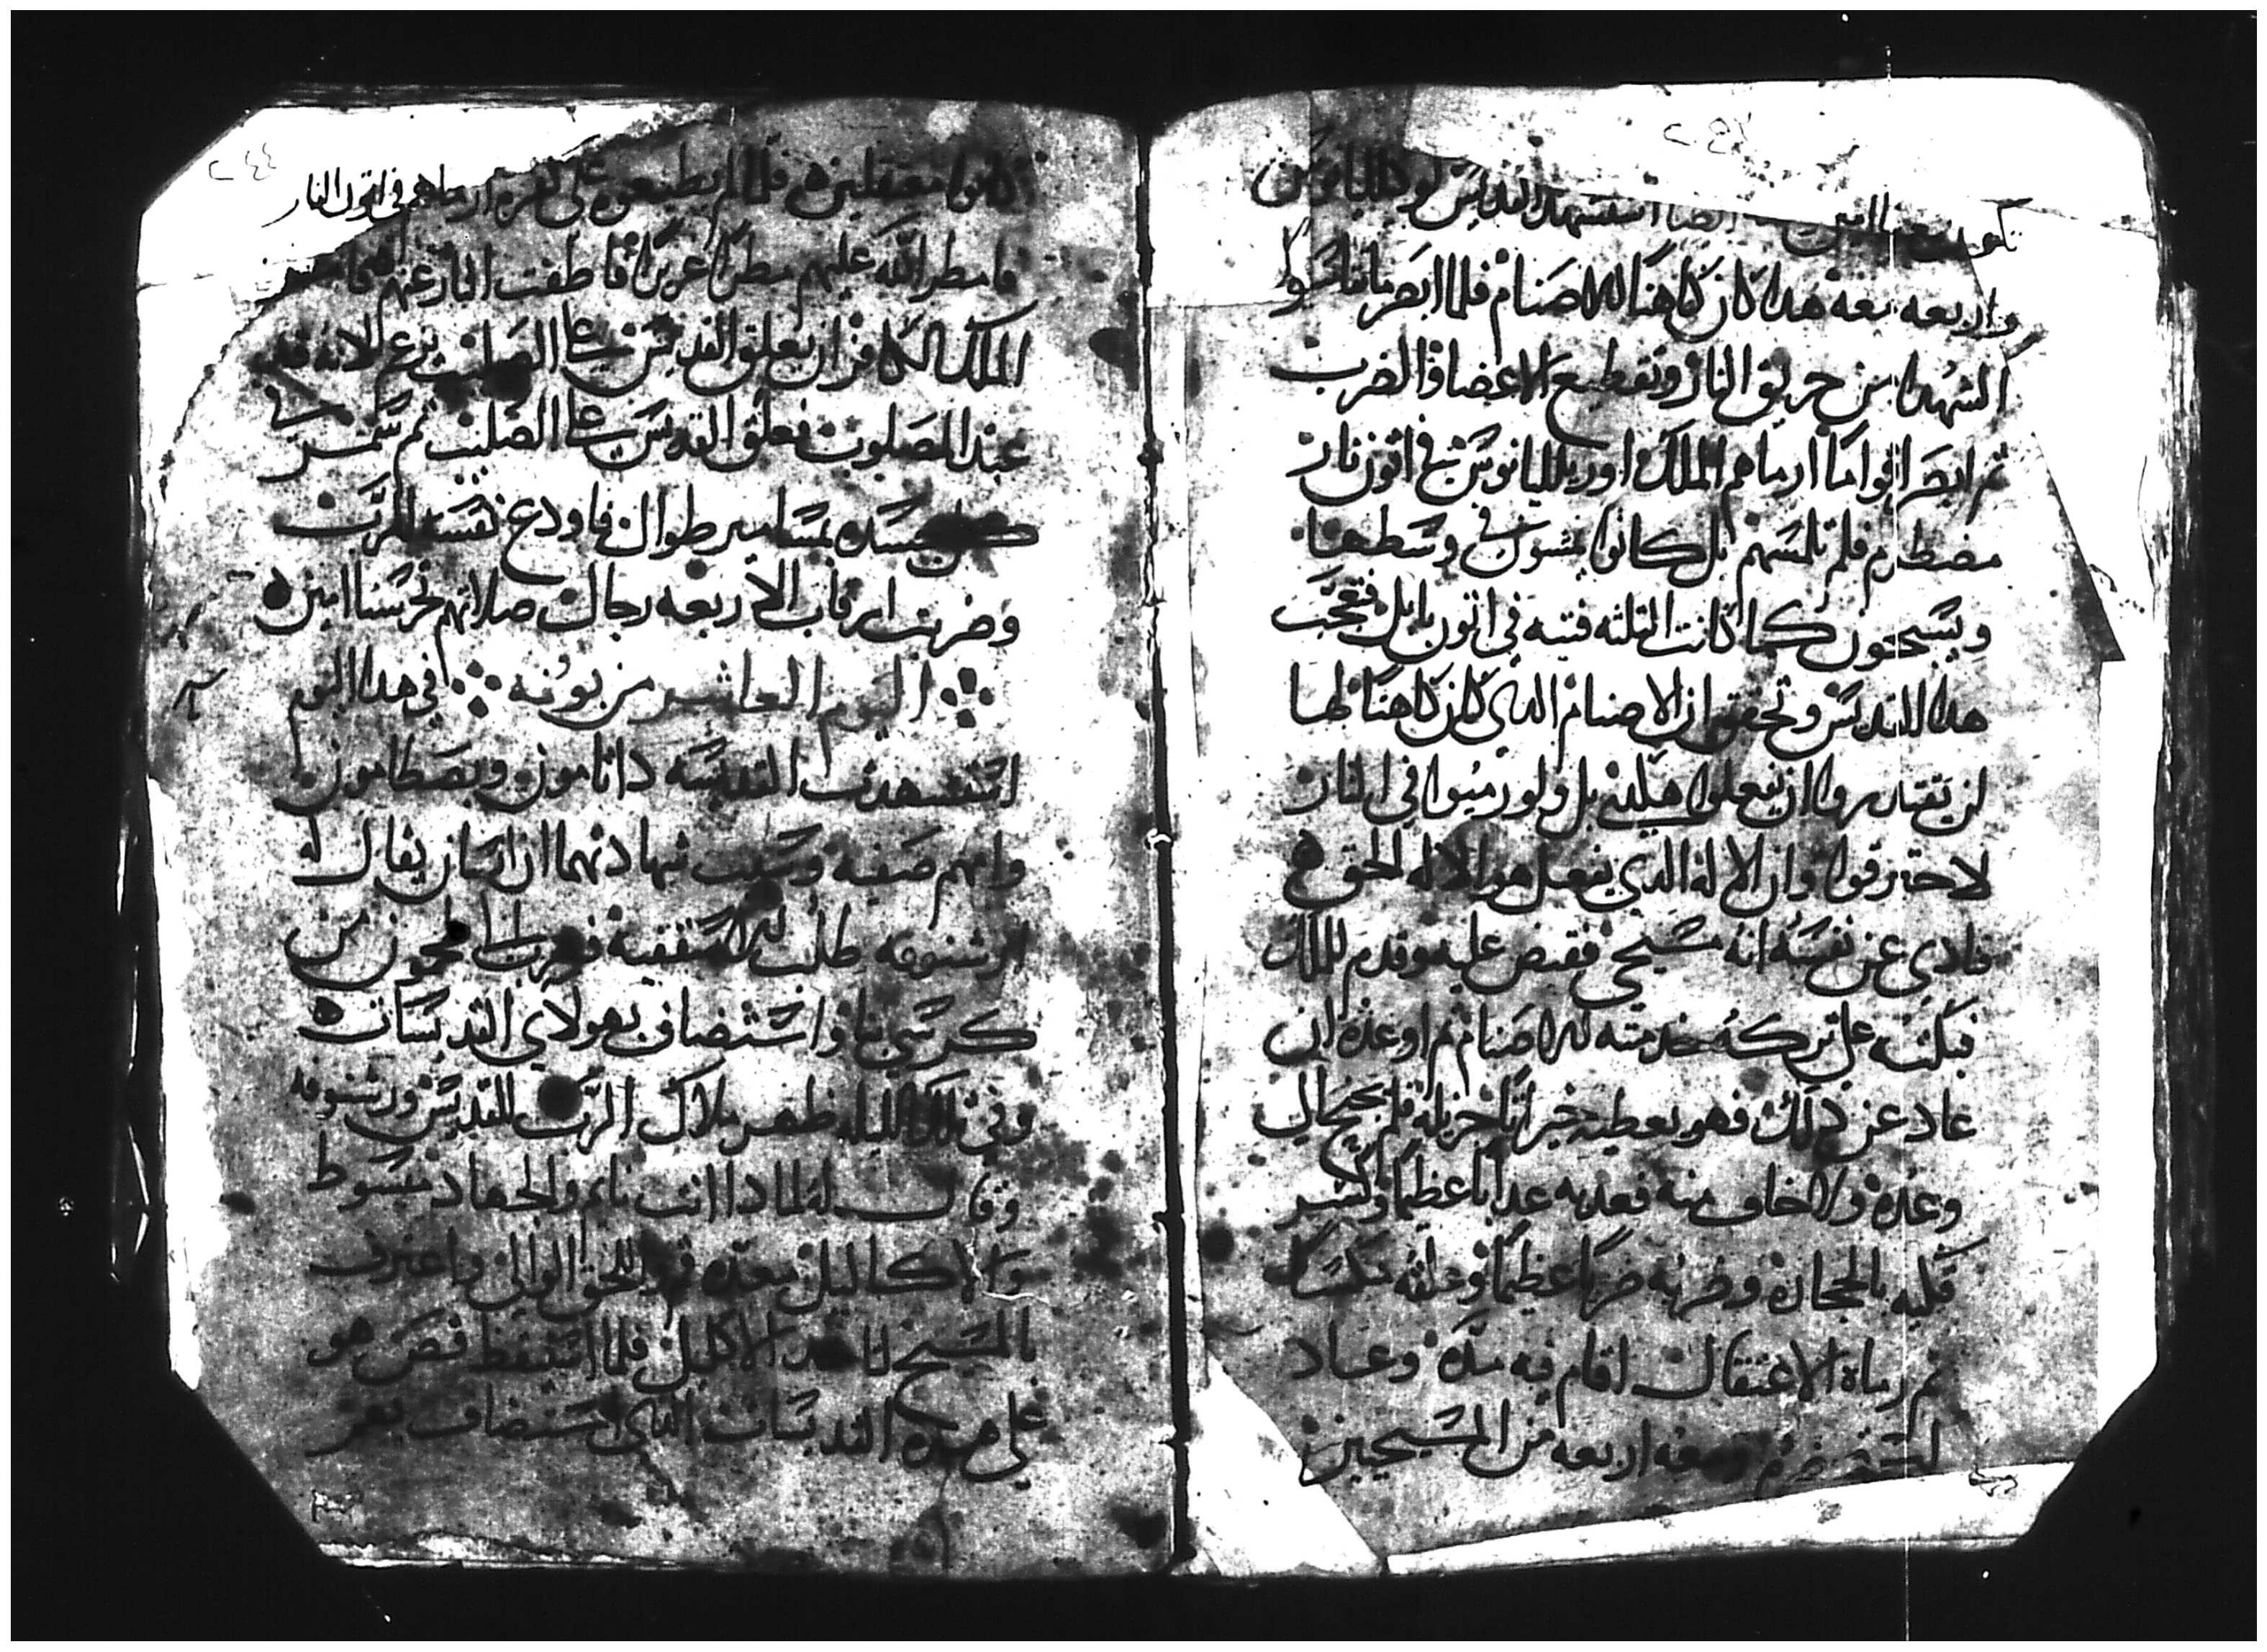 تكون معنا امين ايضا استشهد القديس لوكليانوس
واربعه معه هدا كان كاهنا للاصنام فلما ابصر ما نا
الشهدا من حريق النار وتقطيع الاعضا والضرب
ثم ابصر اقواما ارماهم الملك اوريليانوس في اتون نار
مضطرم فلم تلمسهم بل كانوا يمشون في وسطها
ويسبحون كما كانت الثلثه فتيه في اتون بابل فتعجب
هدا القديس وتحقق ان الاصنام الدي كان كاهنا لها
لن يقدروا ان يفعلوا هكدي بل ولو رميوا في النار
لاحترقوا وان الاله الدي يفعل هو الاله الحق ه
فنادي عن نفسه انه مسيحي فقبض عليه وقدم للملك
فبكته على تركه خدمته للاصنام ثم اوعده ان
عاد عن دلك فهو يعطيه خيراتا جزيله فلم يجيح الي
وعده ولا خاف منه فعدبه عدابا عظيما وكسر
فكيه بالحجاره وضربه ضربا عظيما وعلقه منكسا
ثم رماه الاعتقال اقام فيه مده وعاد
استحضره ومعه اربعه من المسيحيين
٢٤٤
كانوا معتقلين ه فلما لم يطيعوه على كفره ارماهم في اتون النار
فامطر الله عليهم مطرا غزيرا فاطفت النار عنهم فامر
الملك الكافر ان يعلق القديس على الصليب بزعم لانه قد
عبد المصلوب فعلق القديس على الصليب ثم سمر
كل جسده بمسامير طوال فاودع نفسه للرب
وضربت ارقاب الاربعه رجال صلاتهم تحرسنا امين ه
اليوم العاشر من بوونه في هدا اليوم
استشهدت القديسه دابامون وبصطامون
وامهم صفيه وسبب شهادتهما ان انسان يقال له
ورشنوفه طلب للاسقفيه فهرب الي طحمون من
كرسي بنا واستضاف بهولاي القديسات ه
وفي تلك الليله ظهر ملاك الرب للقديس ورشنوفه
وقال له لمادا انت نايم والجهاد مبسوط
والاكاليل معده قم الحق الوالي واعترف
بالمسيح لتاخد الاكليل فلما استيقظ قص هو
على هده القديسات الدي استضاف بهن